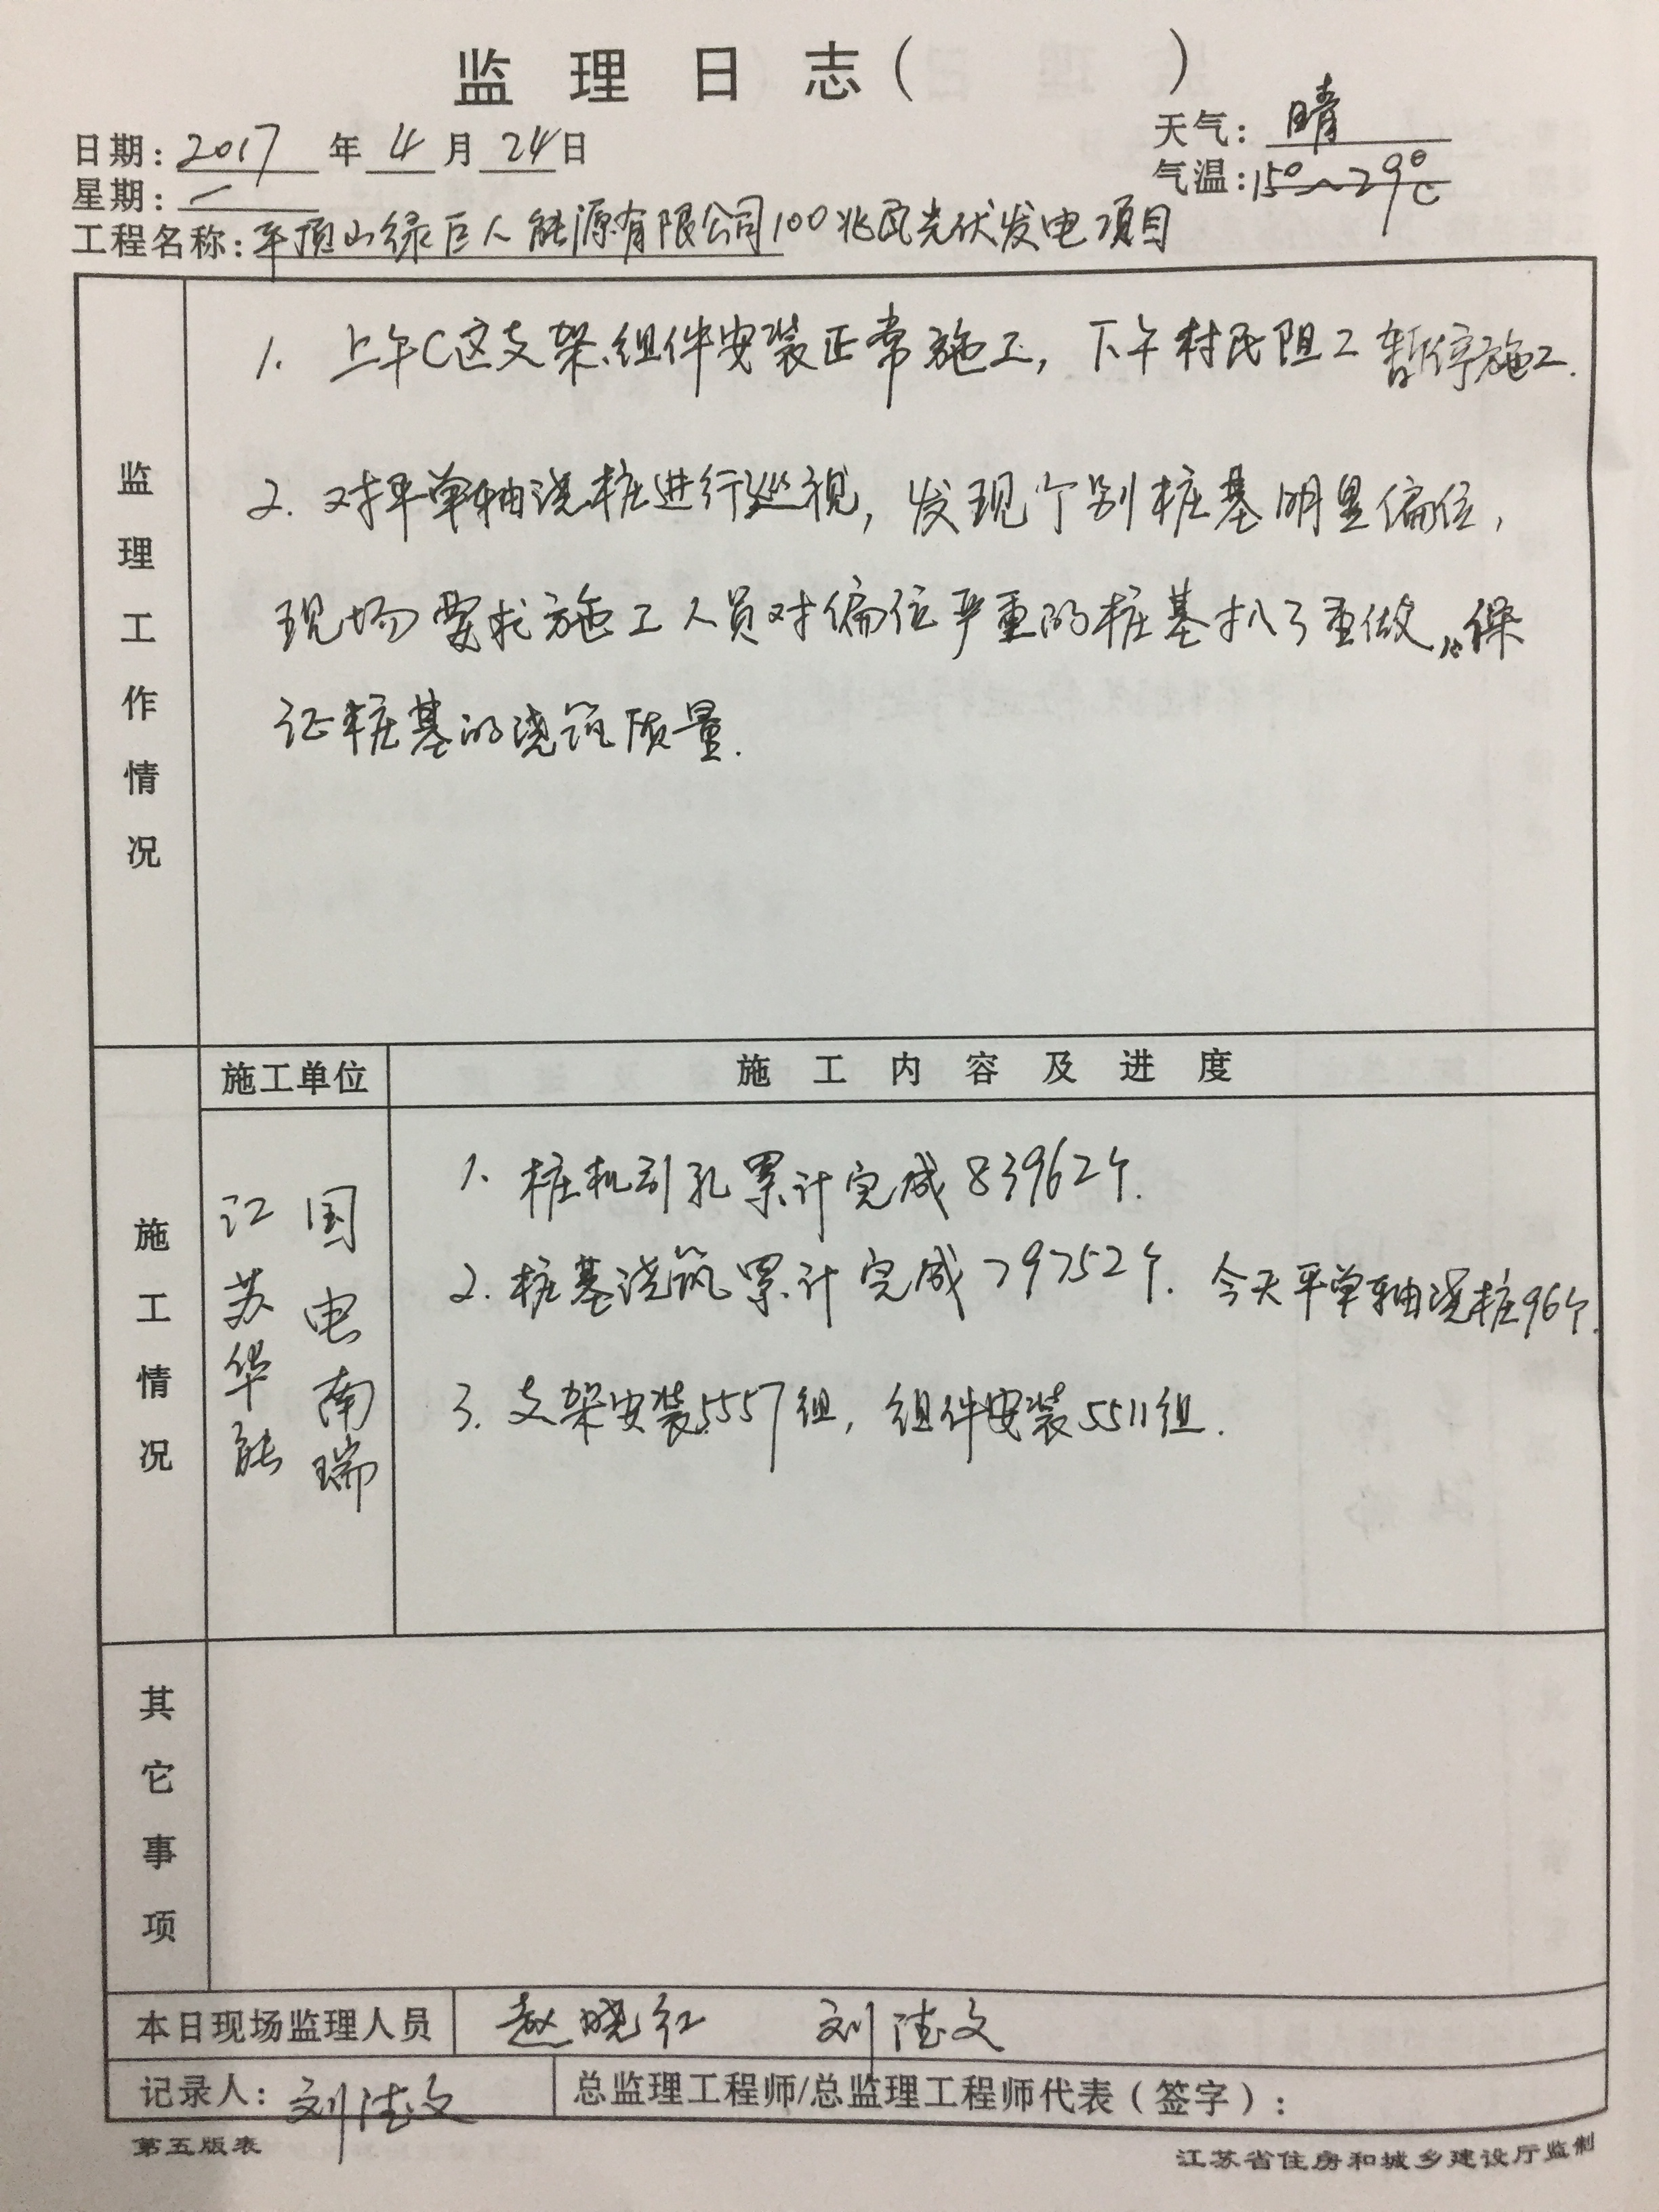 监理日志（　　　）
日期：2017年4月24日
天气：晴
星期：一
气温：15°～29℃
工程名称：平顶山绿巨人能源有限公司100兆瓦光伏发电项目
监理工作情况
1. 上午C区支架、组件安装正常施工，下午村民阻工暂停施工.
2. 对平单轴浇桩进行巡视，发现个别桩基明显偏位，
现场要求施工人员对偏位严重的桩基扒了重做，保
证桩基的浇筑质量.
施工情况
施工单位
施工内容及进度
江苏华能
国电南瑞
1. 桩机引孔累计完成83962个.
2. 桩基浇筑累计完成79752个. 今天平单轴浇桩96个.
3. 支架安装5557组，组件安装5511组.
其它事项
本日现场监理人员 赵晓红 刘文
记录人：刘文
总监理工程师/总监理工程师代表（签字）：
第五版表
江苏省住房和城乡建设厅监制